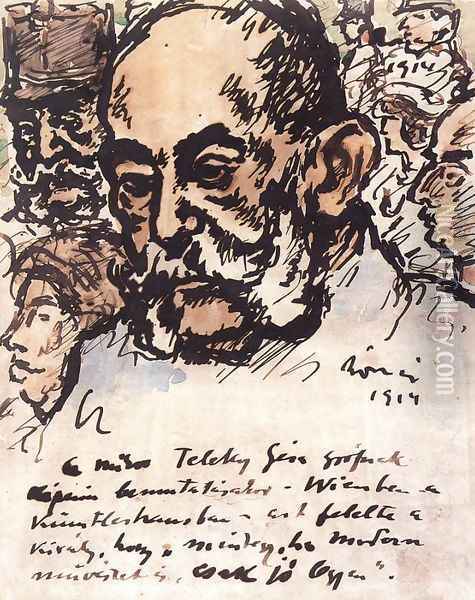 1914
Rónai
1914
a mikor Teleky Géza grófnak
képeim bemutatásakor - Wienben - a
künstlerhausban - azt felelte a
király, hogy „mindegy, ha modern
művészet is, csak jó légyen".